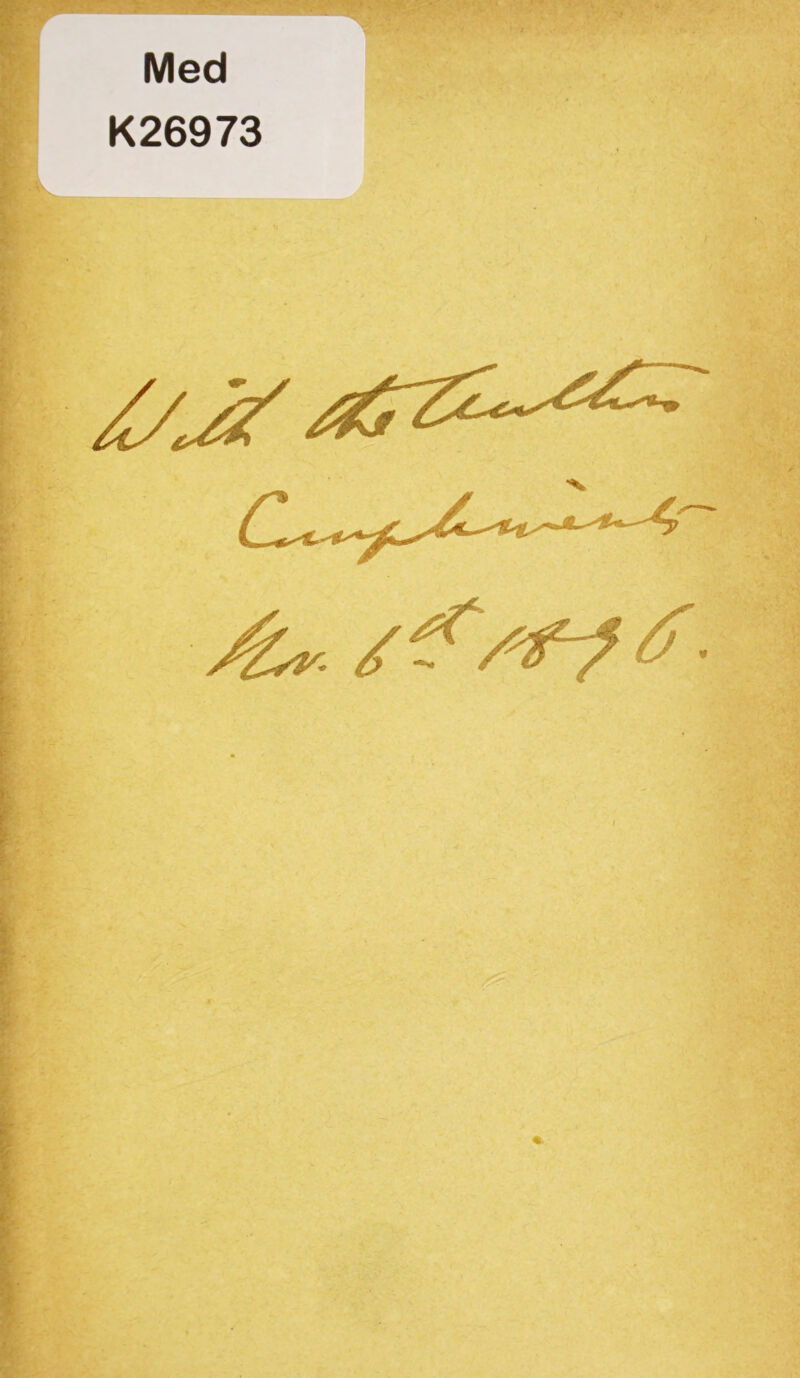 Med
K26973
With the Author
Compliments
Nov. 6th 1896.